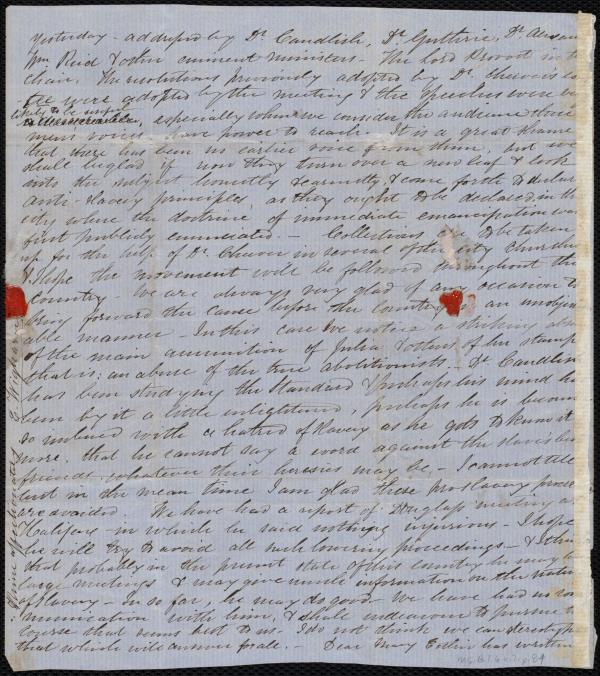 yesterday - addressed by Dr. Candlish, Dr. Guthrie, Dr.
Wm Reid & other eminent ministers - The Lord Provost in
chair. The resolutions previously adopted by Dr. Cheever's
tee were adopted by the meeting & the speeches were
likely to be useful
especially when we consider the audience these
mens voices have power to reach - It is a great shame
that there has been no earlier voice from them, but we
shall be glad if now they turn over a new leaf & look
into the subject honestly & earnestly & come forth to declare
anti-slavery principles, as they ought to be declared in the
city where the doctrine of immediate emancipation was
first publicly enunciated. - Collections are to be taken
up for the help of Dr. Cheever in several of the city churches
& I hope the movement will be followed throughout the
country - We are always very glad of any occasion to
bring forward the cause before the country in an unobjection
able manner In this case we notice a striking
of the main ammunition of Julia & others of her stamp
that is: an abuse of the true abolitionists - Dr. Candlish
has been studying the Standard & perhaps his mind has
been by it a little enlightened, perhaps he is becoming
so imbued with a hatred of slavery as he gets to know it
more, that he cannot say a word against the slaves best
friends, whatever their heresies may be - I cannot tell
but in the mean time I am glad these proslavery
are avoided We have had a report of Douglass' meeting at
Halifax - in which he said nothing injurious - I hope
he will try to avoid all such lowering proceedings - & I think
that probably in the present state of this country he may have
large meetings & may give much information on the nature
of slavery - In so far, he may do good - We have had no com
munication with him, & shall endeavour to pursue the
course that seems best to us - I do not think we can stereotype
that which will answer for all. - Dear Mary Estlin has written
E. Wigham